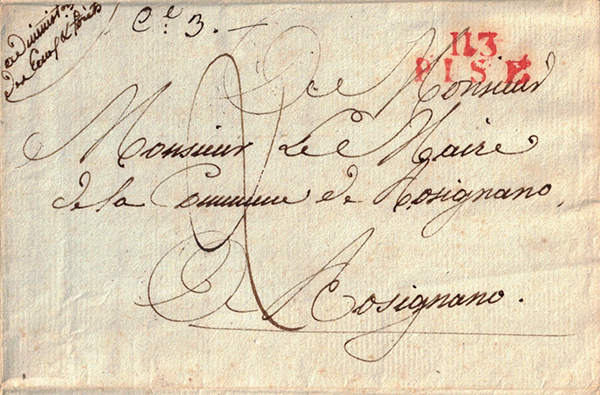 administration
des Eaux & forêts
Ce. 3.
113
PISE
A Monsieur
Monsieur Le Maire
de la Commune de Rosignano,
A Rosignano.